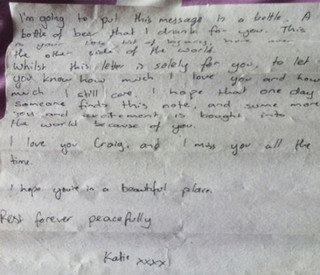 I'm going to put this message in a bottle. A
bottle of beer that I drank for you. This
is your little bit of
the other side of the world.
Whilst this letter is solely for you, to let
you know how much I love you and how
much I still care. I hope that one day
someone finds this note, and some more
joy and excitement is bought into
the world because of you.
I love you Craig, and I miss you all the
time.
I hope you're in a beautiful place.
Rest forever peacefully
Katie xxxx